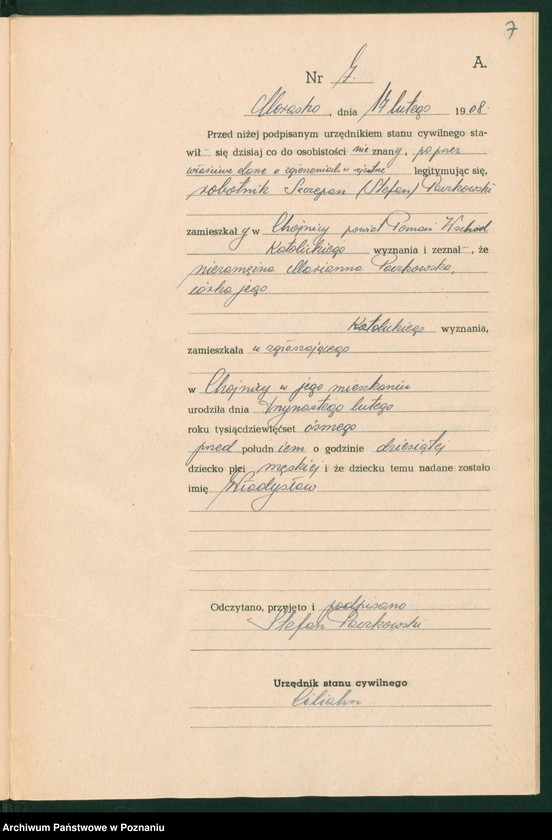 7
A.
Nr 7.
Morasko, dnia 14 lutego 1908.
Przed niżej podpisanym urzędnikiem stanu cywilnego sta-
wił - się dzisiaj co do osobistości nieznany, poprzez
właściwe dane o legitymując się,
robotnik Szczepan (Stefan) Paczkowski
zamieszkały w Chojnicy powiat Poznań Wschód
Katolickiego wyznania i zeznał -, że
niezamężna Marianna Paczkowska,
córka jego
Katolickiego wyznania,
zamieszkała u zgłaszającego
w Chojnicy w jego mieszkaniu
urodziła dnia trzynastego lutego
roku tysiącdziewięćset ósmego
przed południem o godzinie dziesiątej
dziecko płci męskiej i że dziecku temu nadane zostało
imię Władysław
Odczytano, przyjęto i podpisano
Stefan Paczkowski
Urzędnik stanu cywilnego
Archiwum Państwowe w Poznaniu